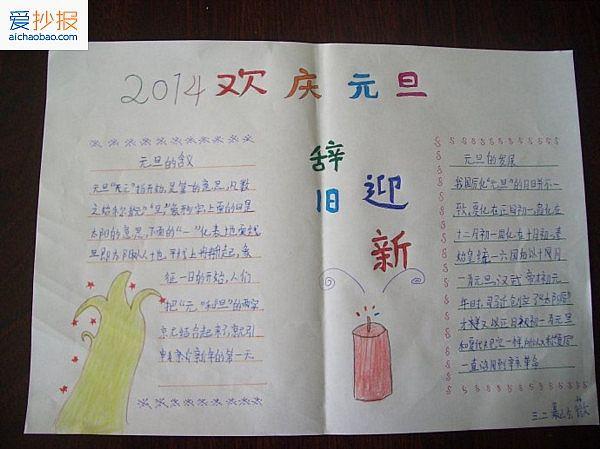 爱抄报
aichaobao.com
2014欢庆元旦
辞旧
迎新
元旦的含义
元旦"元"指开始,是第一的意思,凡数
之始称为"元""旦"象形字,上面的"日"是
太阳的意思,下面的"一"代表地面或
旦即为阳从地平线上冉冉升起,象
征一日的开始,人们
把"元"和"旦"的两字
结合起来了,就引
申为新年的第一天
元旦的发展
我国历代"元旦"的月日并不一
致,夏代在正月初一,商代在
十二月初一,周代在十月初一,秦
始皇统一六国后以十月
一为元旦,汉武帝初元
年时,司马迁创立了"太阳历"
才样又以正月初一为元旦
和夏代规定一样,所以又称"夏历"
一直沿用到辛亥革命
三.二